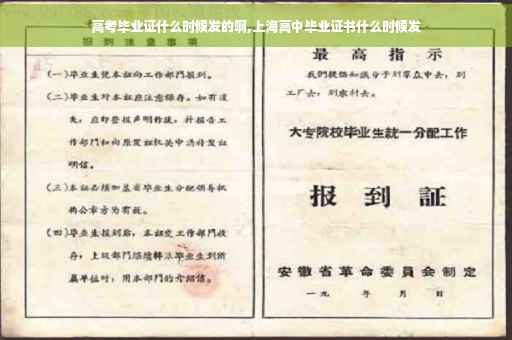 高考毕业证什么时候发的啊,上海高中毕业证书什么时候发
报到注意事项
(一)毕业生凭本证向工作部門报到。
(二)毕业生对本証应注意保存。如有遺
失,应即登报声明作废,并报告工
作部門和向原发証机关申請补发証
明信。
(三)本証必須加盖省毕业生分配領导机
构公章方为有效。
(四)毕业生报到后,本証交工作部門收
存;上級部門繼續轉派毕业生到所
屬单位时,用本部門的介紹信。
最高指示
我們提倡知識分子到羣众中去,到
工厂去,到农村去。
大专院校毕业生統一分配工作
报到証
安徽省革命委員会制定
一九 年 月 日